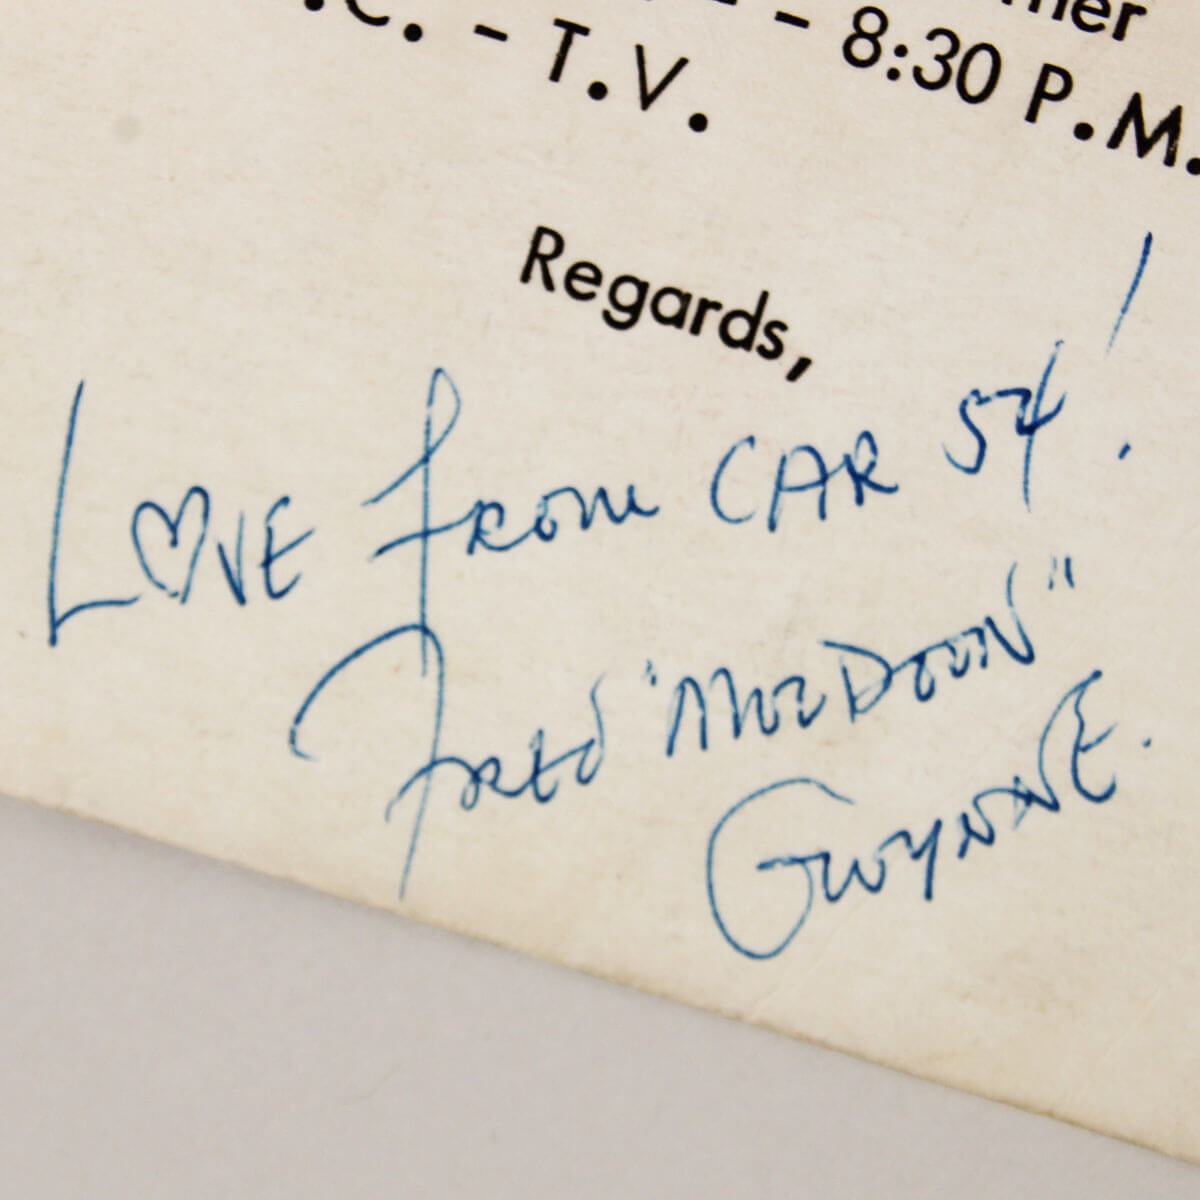 - 8:30 P.M.
C. - T.V.
Regards,
LOVE FROM CAR 54!
FRED "MULDOON"
GWYNNE.